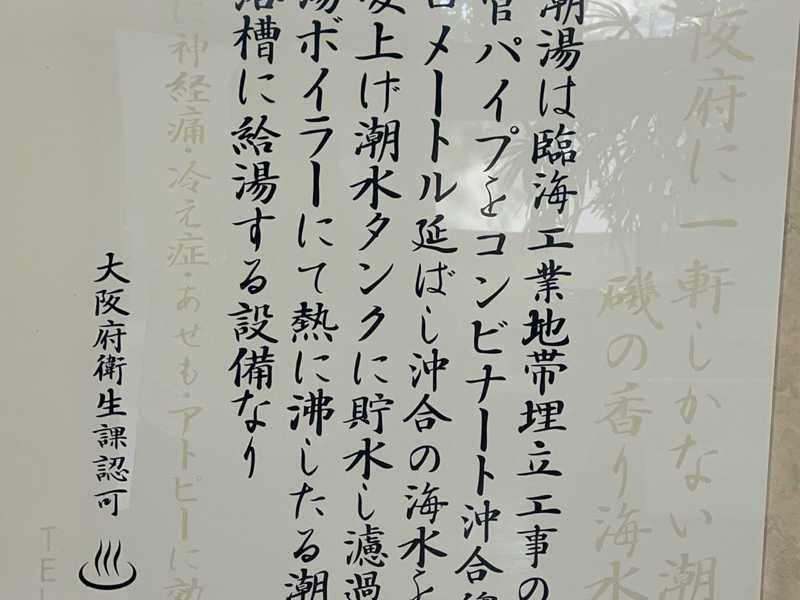 阪府に一軒しかない潮
磯の香り海水
潮湯は臨海工業地帯埋立工事の
管パイプをコンビナート沖合
メートル延ばし沖合の海水を
吸上げ潮水タンクに貯水し濾過
湯ボイラーにて熱に沸したる潮
浴槽に給湯する設備なり
に神経痛・冷え症・あせも・アトピーに効
大阪府衛生課認可
TEL